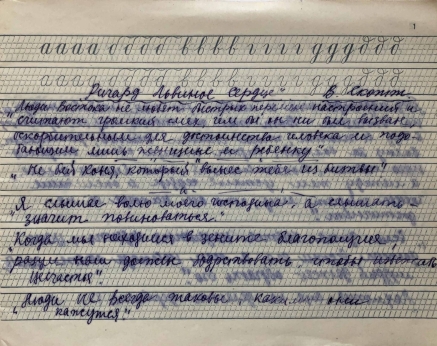 1
аааа бббб вввв гггг дддддд
"Ричард Львиное Сердце" В. Скотт.
"Люди Востока не любят быстрых перемен настроения и
считают громкий смех чем бы он ни был вызван,
оскорбительным для достоинства человека и подо-
бающим лишь женщине и ребёнку"
"Не бей коня, который вынес тебя из битвы!"
"Я слышал волю моего господина, а слышать
значит повиноваться."
"Когда мы находимся в зените благополучия,
разум наш должен бодрствовать, чтобы избежать
несчастья".
"Люди не всегда таковы, какими они
кажутся."